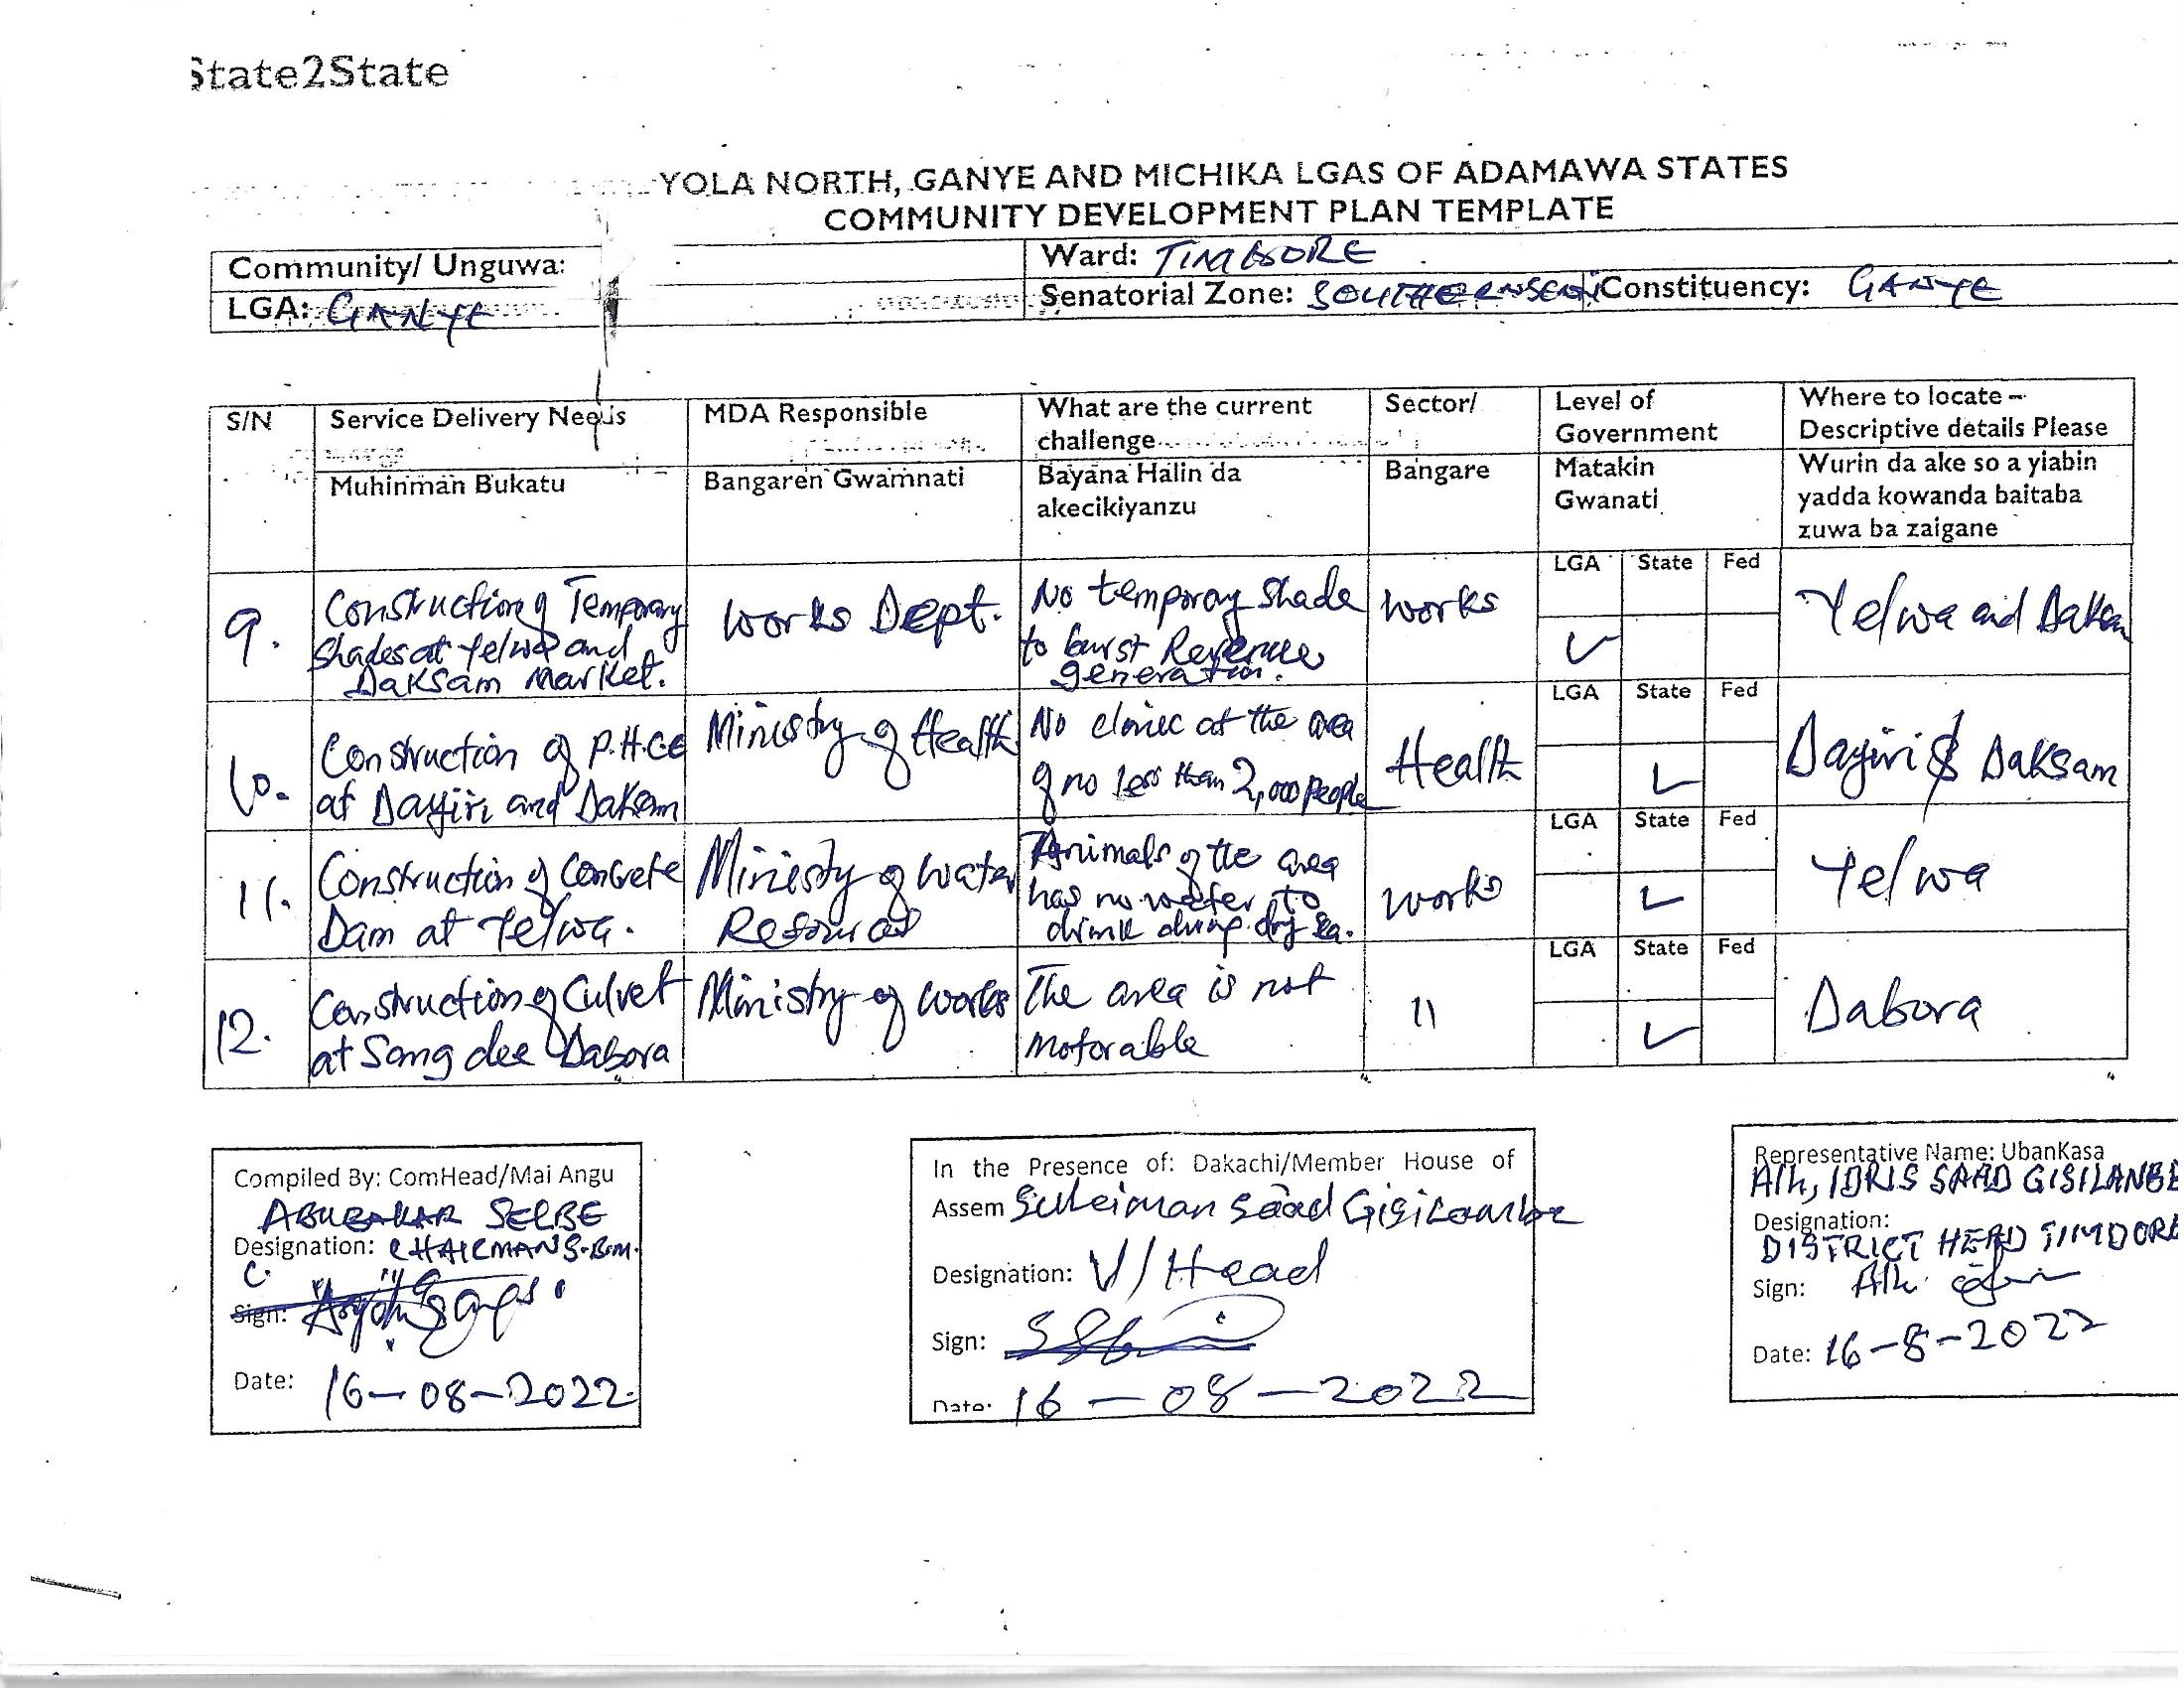 State2State
YOLA NORTH, GANYE AND MICHIKA LGAS OF ADAMAWA STATES
COMMUNITY DEVELOPMENT PLAN TEMPLATE
Community/ Unguwa: Ward: TIMDORE
LGA: GANYE Senatorial Zone: SOUTHERN Constituency: GANYE
S/N Service Delivery Needs MDA Responsible What are the current challenge Sector/ Level of Government Where to locate – Descriptive details Please
Muhinman Bukatu Bangaren Gwamnati Bayana Halin da akecikiyanzu Bangare Matakin Gwanati Wurin da ake so a yiabin yadda kowanda baitaba zuwa ba zaigane
LGA State Fed
9. Construction of Temporary Shades at Yelwa and Daksam Market. Works Dept. No temporay Shade to burst Revenue generation. Works ✓ Yelwa and Daksam
LGA State Fed
10. Construction of P.H.CE at Dayiri and Daksam Ministry of Health No clinic at the area of no less than 2,000 people Health ✓ Dayiri & Daksam
LGA State Fed
11. Construction of Concrete Dam at Yelwa. Ministry of Water Resources Animals of the area has no water to drink during dry sea. Works ✓ Yelwa
LGA State Fed
12. Construction of Culvet at Sang dee Dabora Ministry of Works The area is not motorable 11 ✓ Dabora
Compiled By: ComHead/Mai Angu
ABUBAKAR SELBE
Designation: CHAIRMAN S.B.M.
C.
Sign:
Date: 16-08-2022.
In the Presence of: Dakachi/Member House of
Assem Suleiman Saad Gisilambe
Designation: V/Head
Sign:
Date: 16-08-2022
Representative Name: UbanKasa
Alh, IDRIS SAAD GISILANBE
Designation:
DISTRICT HEAD TIMDORE
Sign: Alh.
Date: 16-8-2022